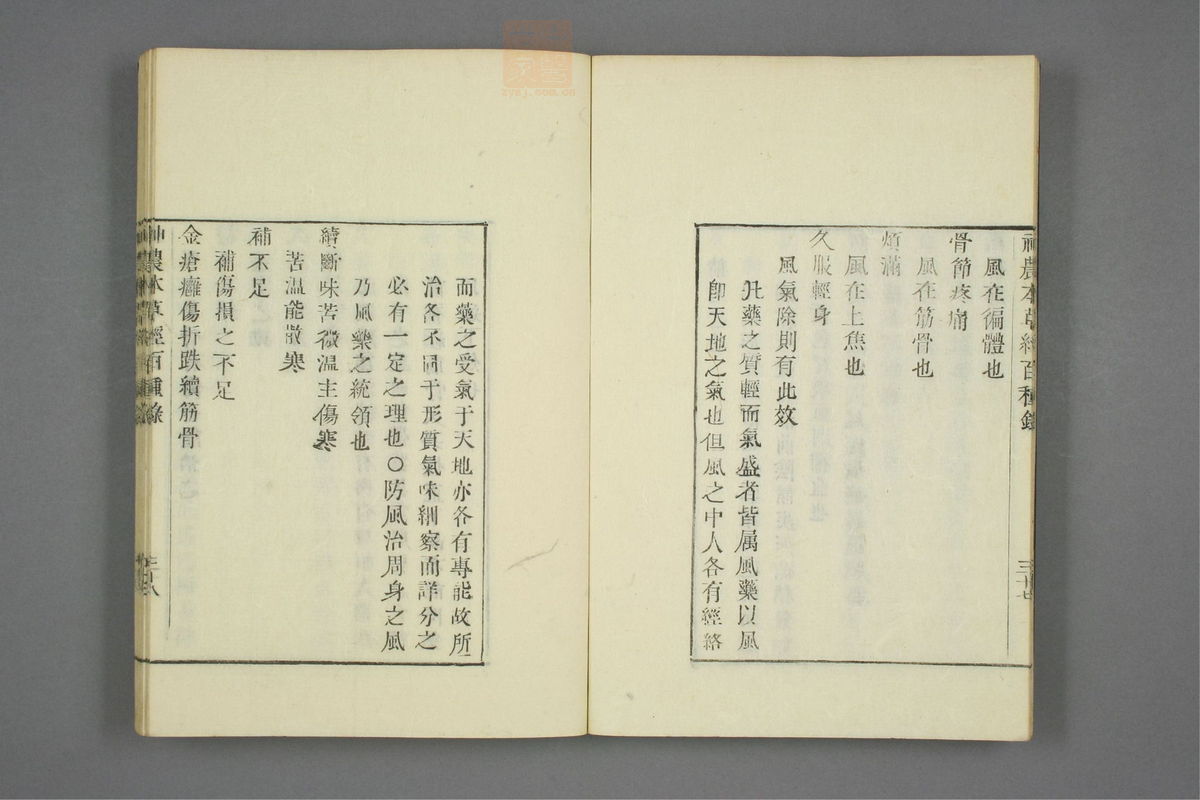 神農本草經百種錄
三十七
風在徧體也
骨節疼痛
風在筋骨也
煩滿
風在上焦也
久服輕身
風氣除則有此效
凡藥之質輕而氣盛者皆属風藥以風
卽天地之氣也但風之中人各有經絡
而藥之受氣于天地亦各有專能故所
治各不同于形質氣味細察而詳分之
必有一定之理也○防風治周身之風
乃風藥之統領也
續斷味苦微温主傷寒
苦温能散寒
補不足
補傷損之不足
金瘡癰傷折跌續筋骨
神農本草經百種錄
三十八
zysj.com.cn